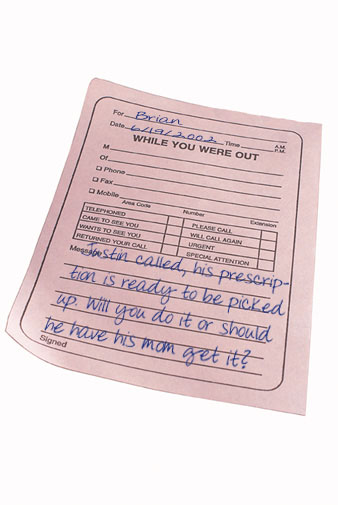 For Brian
Date 6/19/2002 Time A.M. P.M.
WHILE YOU WERE OUT
M
Of
Phone
Fax
Mobile
Area Code Number Extension
TELEPHONED PLEASE CALL
CAME TO SEE YOU WILL CALL AGAIN
WANTS TO SEE YOU URGENT
RETURNED YOUR CALL SPECIAL ATTENTION
Message Justin called, his prescrip-
tion is ready to be picked
up. Will you do it or should
he have his mom get it?
Signed